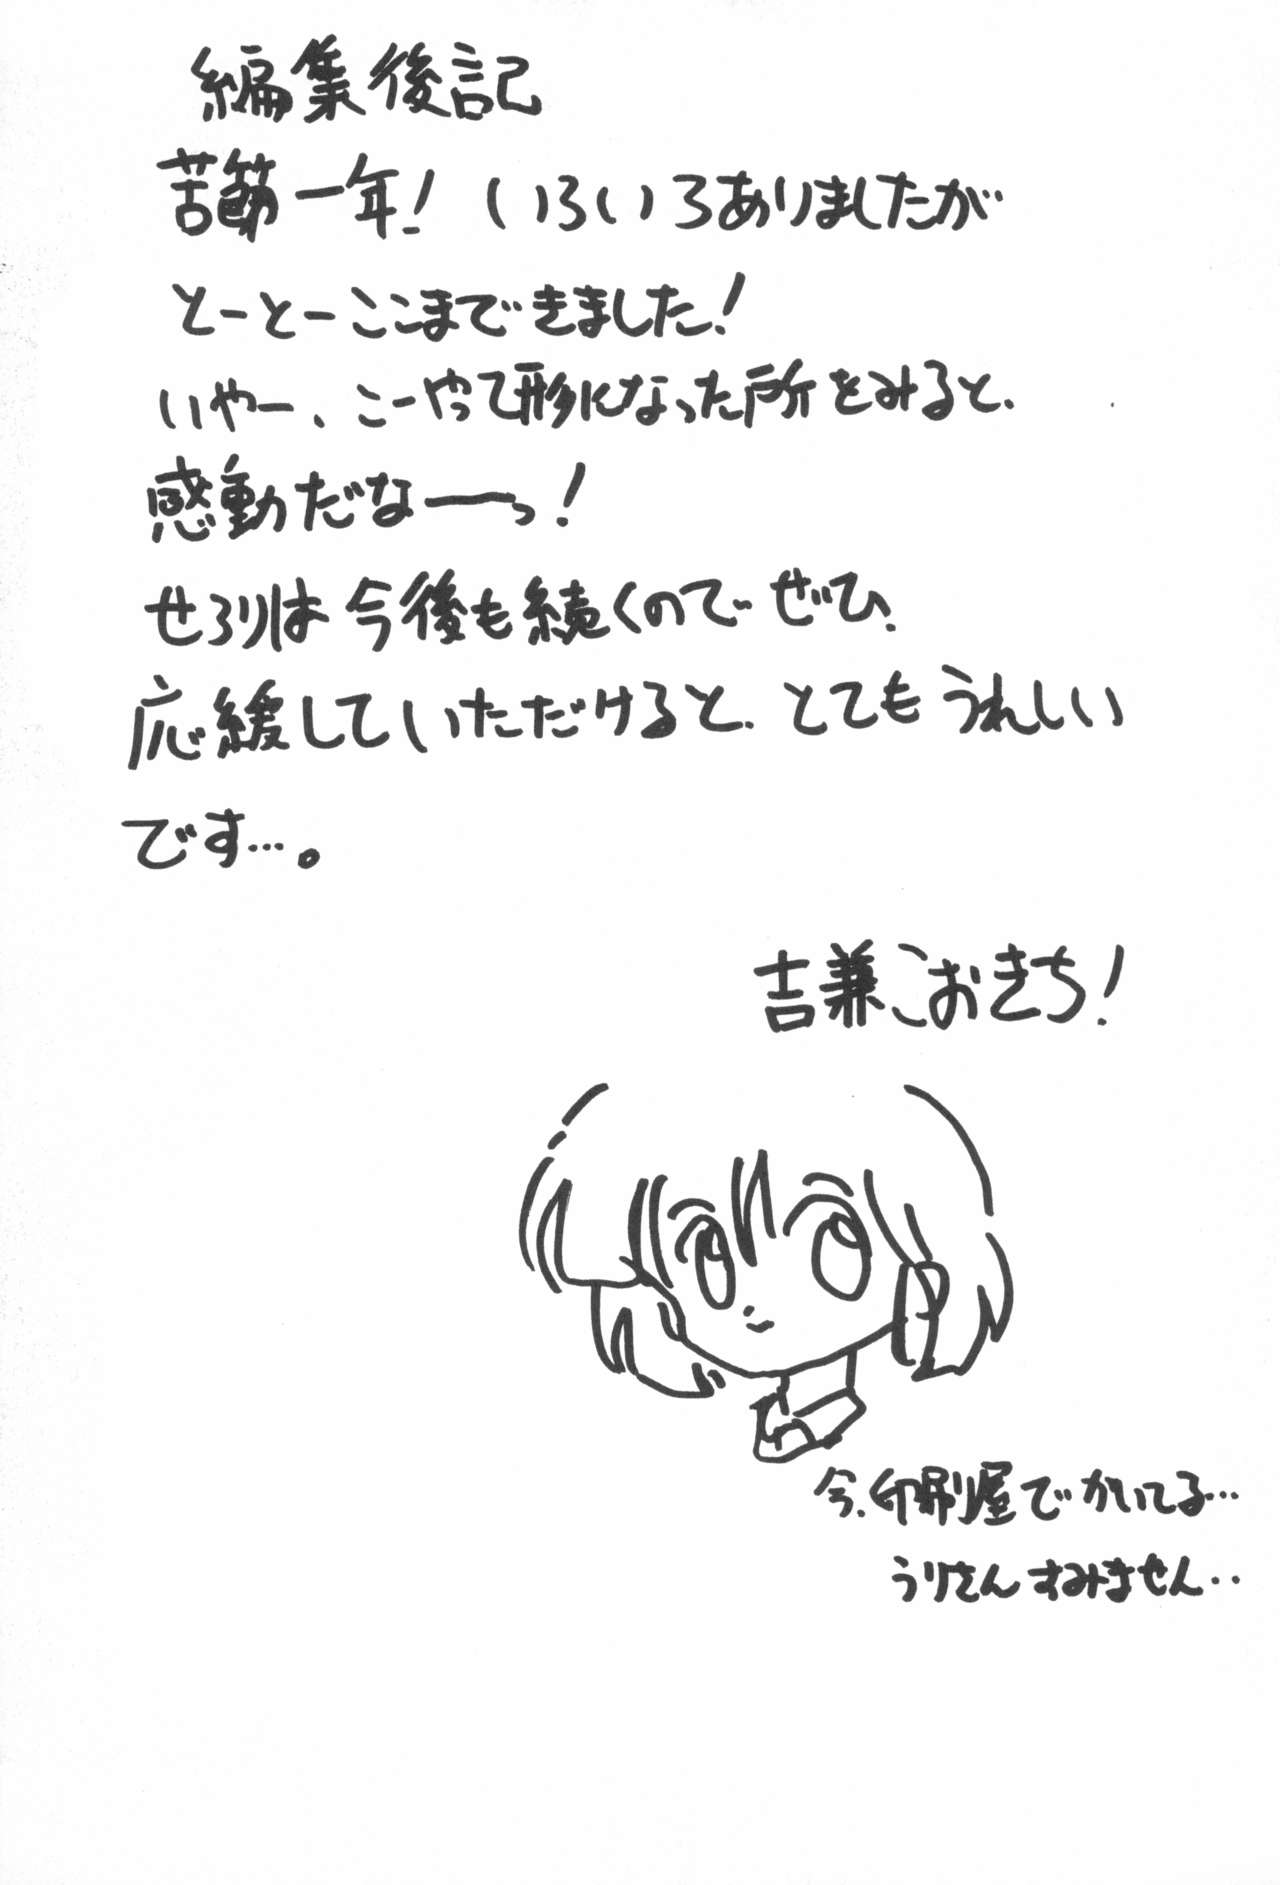 編集後記
苦節一年! いろいろありましたが
とーとーここまできました!
いやー、こーやって形になった所をみると、
感動だなーーっ!
せろりは今後も続くのでぜひ、
応援していただけると、とてもうれしい
です…。
吉兼こおきち!
今、印刷屋でかいてる…
うりさんすみません‥